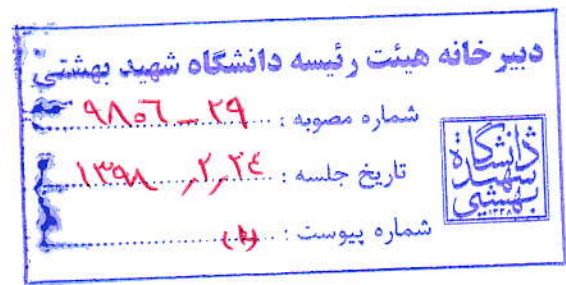 دبیرخانه هیئت رئیسه دانشگاه شهید بهشتی
شماره مصوبه : ۲۹ - ۹۸۰۶
تاریخ جلسه : ۱۳۹۸ , ۲ , ۲۴
شماره پیوست :
دانشگاه
شهید
بهشتی
۱۳۳۸